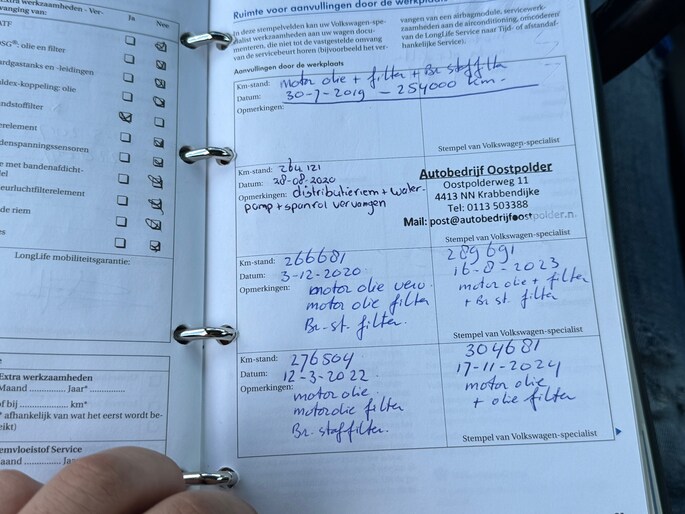 Extra werkzaamheden - Ver-
vanging van:
Ja
Nee
ATF
DSG®; olie en filter
ardgastanks en -leidingen
aldex-koppeling; olie
andstoffilter
terelement
denspanningssensoren
e met bandenafdicht-
del
eurluchtfilterelement
de riem
es
LongLife mobiliteitsgarantie:
Extra werkzaamheden
Maand .............. Jaar* ..............
of bij .............. km*
* afhankelijk van wat het eerst wordt be-
eikt)
emvloeistof Service
aand .............. Ja
Ruimte voor aanvullingen door de werkplaats
In deze stempelvelden kan uw Volkswagen-spe-
cialist werkzaamheden aan uw wagen docu-
menteren, die niet tot de vastgestelde omvang
van de servicebeurt horen (bijvoorbeeld het ver-
vangen van een airbagmodule, servicewerk-
zaamheden aan de airconditioning, omcoderen
van de LongLife Service naar Tijd- of afstandaf-
hankelijke Service).
Aanvullingen door de werkplaats
Km-stand: motor olie + filter + Br. stoffilter
Datum: 30-7-2019 - 254000 km.-
Opmerkingen:
Stempel van Volkswagen-specialist
Km-stand: 264121
Datum: 28-08-2020
Opmerkingen: distributieriem + water-
pomp + spanrol vervangen
Autobedrijf Oostpolder
Oostpolderweg 11
4413 NN Krabbendijke
Tel: 0113 503388
Mail: post@autobedrijfoostpolder.n
Stempel van Volkswagen-specialist
Km-stand: 266681
Datum: 3-12-2020
Opmerkingen: motor olie verv.
motor olie filter
Br. st. filter.
289691
16-8-2023
motor olie + filter
+ Br st. filter
Stempel van Volkswagen-specialist
Km-stand: 276564
Datum: 12-3-2022.
Opmerkingen: motor olie
motorolie filter
Br. stoffilter.
304681
17-11-2024
motor olie
+ olie filter
Stempel van Volkswagen-specialist